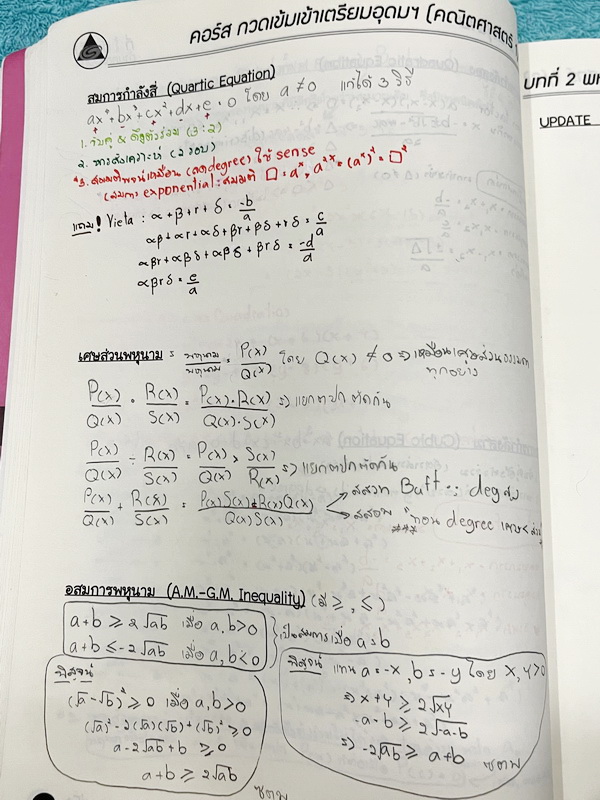 คอร์ส กวดเข้มเข้าเตรียมอุดมฯ (คณิตศาสตร์
บทที่ 2 พห
UPDATE
สมการกำลังสี่ (Quartic Equation)
ax⁴+bx³+cx²+dx+e=0 โดย a≠0 แก้ได้ 3 วิธี
1. จับคู่ & ดึงตัวร่วม (3:2)
2. หารสังเคราะห์ (2 รอบ)
*3. สมมติพจน์เหมือน (ลด degree) ใช้ sense
exponential: สมมติ □=aˣ, a²ˣ=(aˣ)²=□²
แถม! Vieta: α+β+r+δ = -b/a
αβ+αr+αδ+βr+βδ+rδ = c/a
αβr+αβδ+αβδ+βrδ = -d/a
αβrδ = e/a
เศษส่วนพหุนาม = พหุนาม/พหุนาม = P(x)/Q(x) โดย Q(x) ≠ 0 ⇒ เหมือนเศษส่วนธรรมดา
ทุกอย่าง
P(x)/Q(x) · R(x)/S(x) = P(x)·R(x)/Q(x)·S(x) ⇒ แยกตปก ตัดกัน
P(x)/Q(x) ÷ R(x)/S(x) = P(x)/Q(x) × S(x)/R(x) ⇒ แยกตปกตัดกัน
P(x)/Q(x) + R(x)/S(x) = P(x)S(x)+R(x)Q(x)/Q(x)S(x)
degree เศษ<ส่วน
***
อสมการพหุนาม (A.M.-G.M. Inequality) (มี ≥, ≤)
a+b ≥ 2√ab เมื่อ a,b>0
a+b ≤ -2√ab เมื่อ a,b<0
เป็นสมการเมื่อ a=b
พิสูจน์
(√a-√b)² ≥ 0 เมื่อ a,b>0
(√a)²-2(√a)(√b)+(√b)² ≥ 0
a-2√ab+b ≥ 0
a+b ≥ 2√ab
ซตพ
พิสูจน์ แทน a=-x, b=-y โดย x,y>0
⇒ x+y ≥ 2√xy
-a-b ≥ 2√-a-b
⇒ -2√ab ≥ a+b
ซตพ